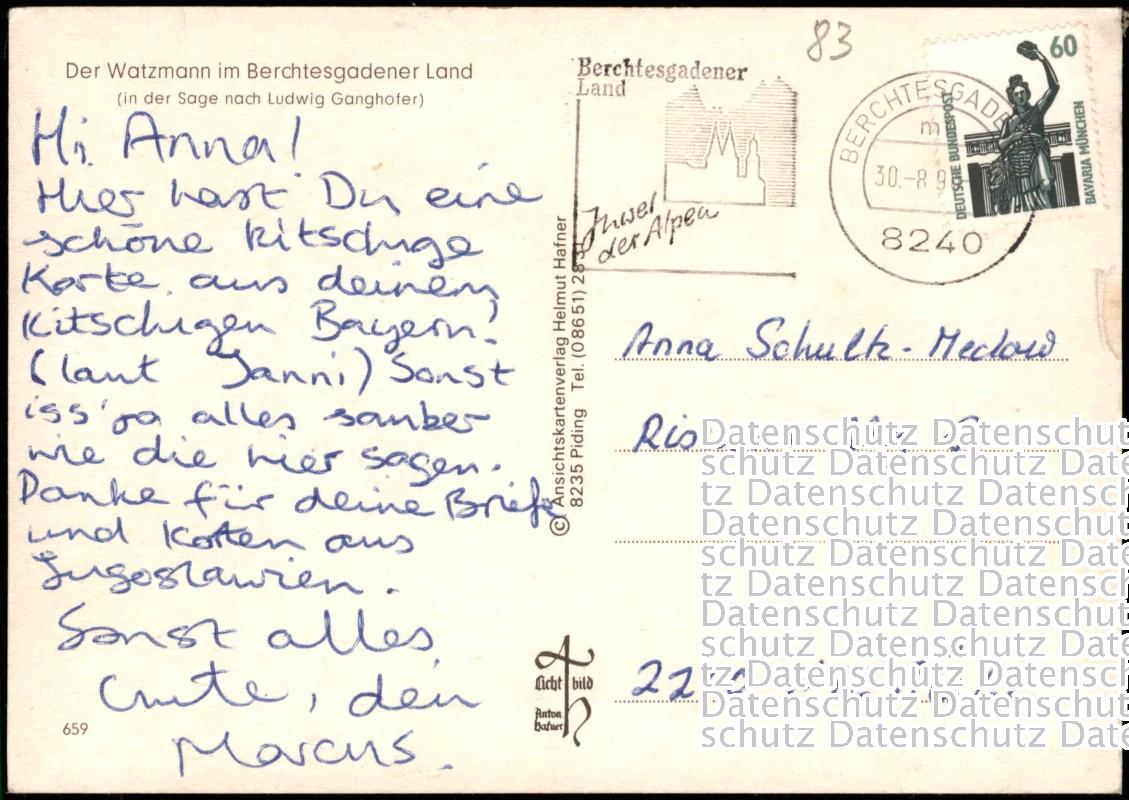 Der Watzmann im Berchtesgadener Land
(in der Sage nach Ludwig Ganghofer)
Hi Anna!
Hier hast Du eine
schöne kitschige
Karte aus deinem
kitschigen Bayern!
(laut Janni) Sonst
iss' ja alles sauber
wie die hier sagen.
Danke für deine Briefe
und Karten aus
Jugoslawien.
Sonst alles
Gute, dein
Marcus.
659
© Ansichtskartenverlag Helmut Hafner
8235 Piding Tel. (08651)
Licht bild
Anton
Hafner
83
Berchtesgadener
Land
Juwel
der Alpen
BERCHTESGADE
m
30.-8.9
8240
60
DEUTSCHE BUNDESPOST
BAVARIA MÜNCHEN
Anna Schultz-Medow
Datenschutz Datenschut
schutz Datenschutz Date
tz Datenschutz Datensch
Datenschutz Datenschutz
schutz Datenschutz Date
tz Datenschutz Datensch
Datenschutz Datenschutz
schutz Datenschutz Date
tz Datenschutz Datensch
Datenschutz Datenschutz
schutz Datenschutz Date